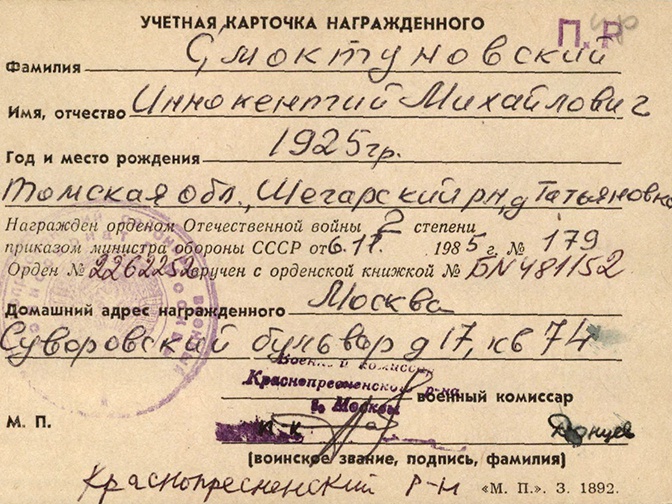 УЧЕТНАЯ КАРТОЧКА НАГРАЖДЕННОГО
П. Р
Фамилия Смоктуновский
Имя, отчество Иннокентий Михайлович
Год и место рождения 1925 гр.
Томская обл., Шегарский р-н, д Татьяновка
Награжден орденом Отечественной войны 2 степени
приказом министра обороны СССР от 6.11. 1985 г. № 179
Орден № 2262252 вручен с орденской книжкой № БN481152
Домашний адрес награжденного Москва
Суворовский бульвар д 17, кв 74
Военный комиссар
Краснопресненского р-на
г. Москвы
военный комиссар
М. П.
(воинское звание, подпись, фамилия)
Краснопресненский Р-Н
«М. П». З. 1892.